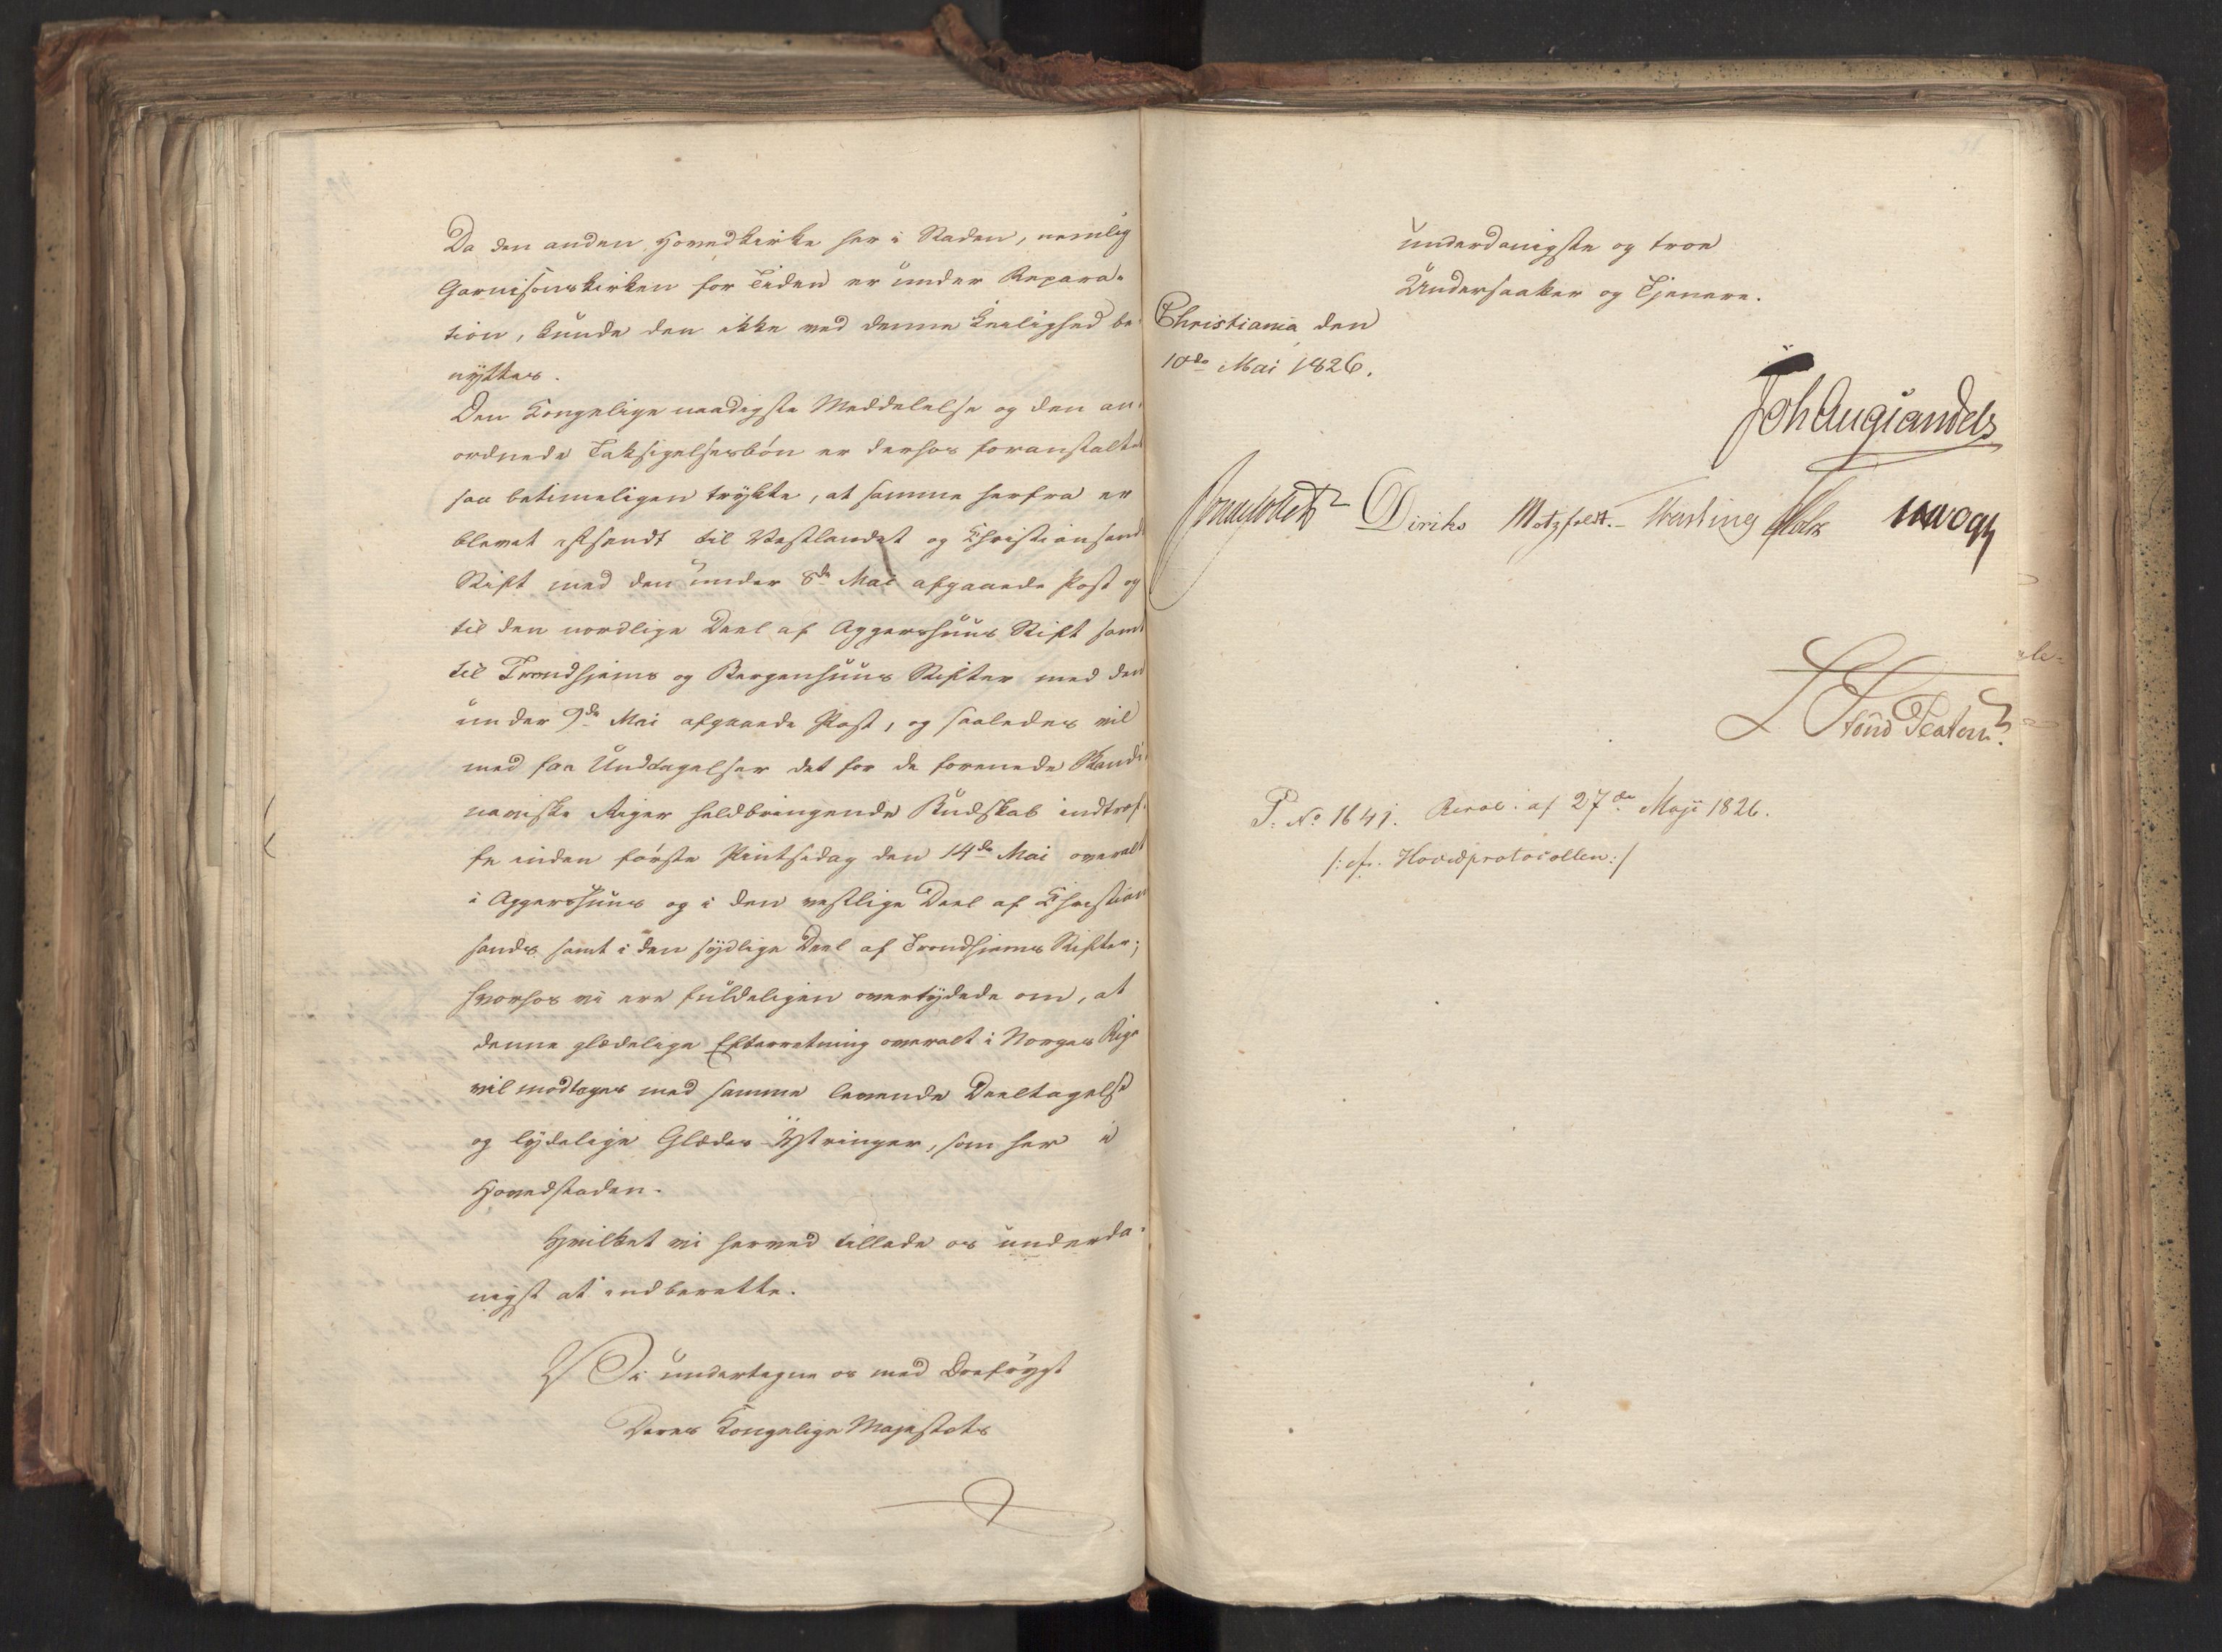 Da den anden Hovedkirke her i Staden, nemlig
Garnisonskirken for Tiden er under Repara-
tion, kunde den ikke ved denne Leilighed be-
nyttes.
Den Kongelige naadigste Meddelelse og den an-
ordnede Taksigelsesbön er derhos foranstaltet
saa betimeligen trykte, at samme herfra er
blevet afsendt til Vestlandet og Christiansand
Stift med den under 8de Mai afgaaede Post og
til den nordlige Deel af Aggershuus Stift samt
til Trondhjems og Bergenhuus Stifter med den
under 9de Mai afgaaede Post, og saaledes vil
med faa Undtagelser det for de forenede Skandi-
naviske Riger heldbringende Budskab indtref-
fe inden förste Pintsedag den 14de Mai overalt
i Aggershuus og i den vestlige Deel af Christian
sands samt i den sydlige Deel af Trondhjems Stifter;
hvorhos vi ere fuldeligen overtydede om, at
denne glædelige Efterretning overalt i Norges Rige
vil modtages med samme levende Deeltagelse
og lydelige Glædes-Yttringer, som her i
Hovedstaden.
Hvilket vi herved tillade os underda-
nigst at indberette.
Vi undertegne os med Ærefrygt
Deres Kongelige Majestæts
underdanigste og troe
Undersaatter og Tjenere.
Christiania den
10de Mai 1826.
Joh Aug Sandels
Diriks Motzfeldt. Krogh
L Fond Platou.
P. No 1641. Resol: af 27de Maji 1826.
/: cfr. Hovedprotocollen :/